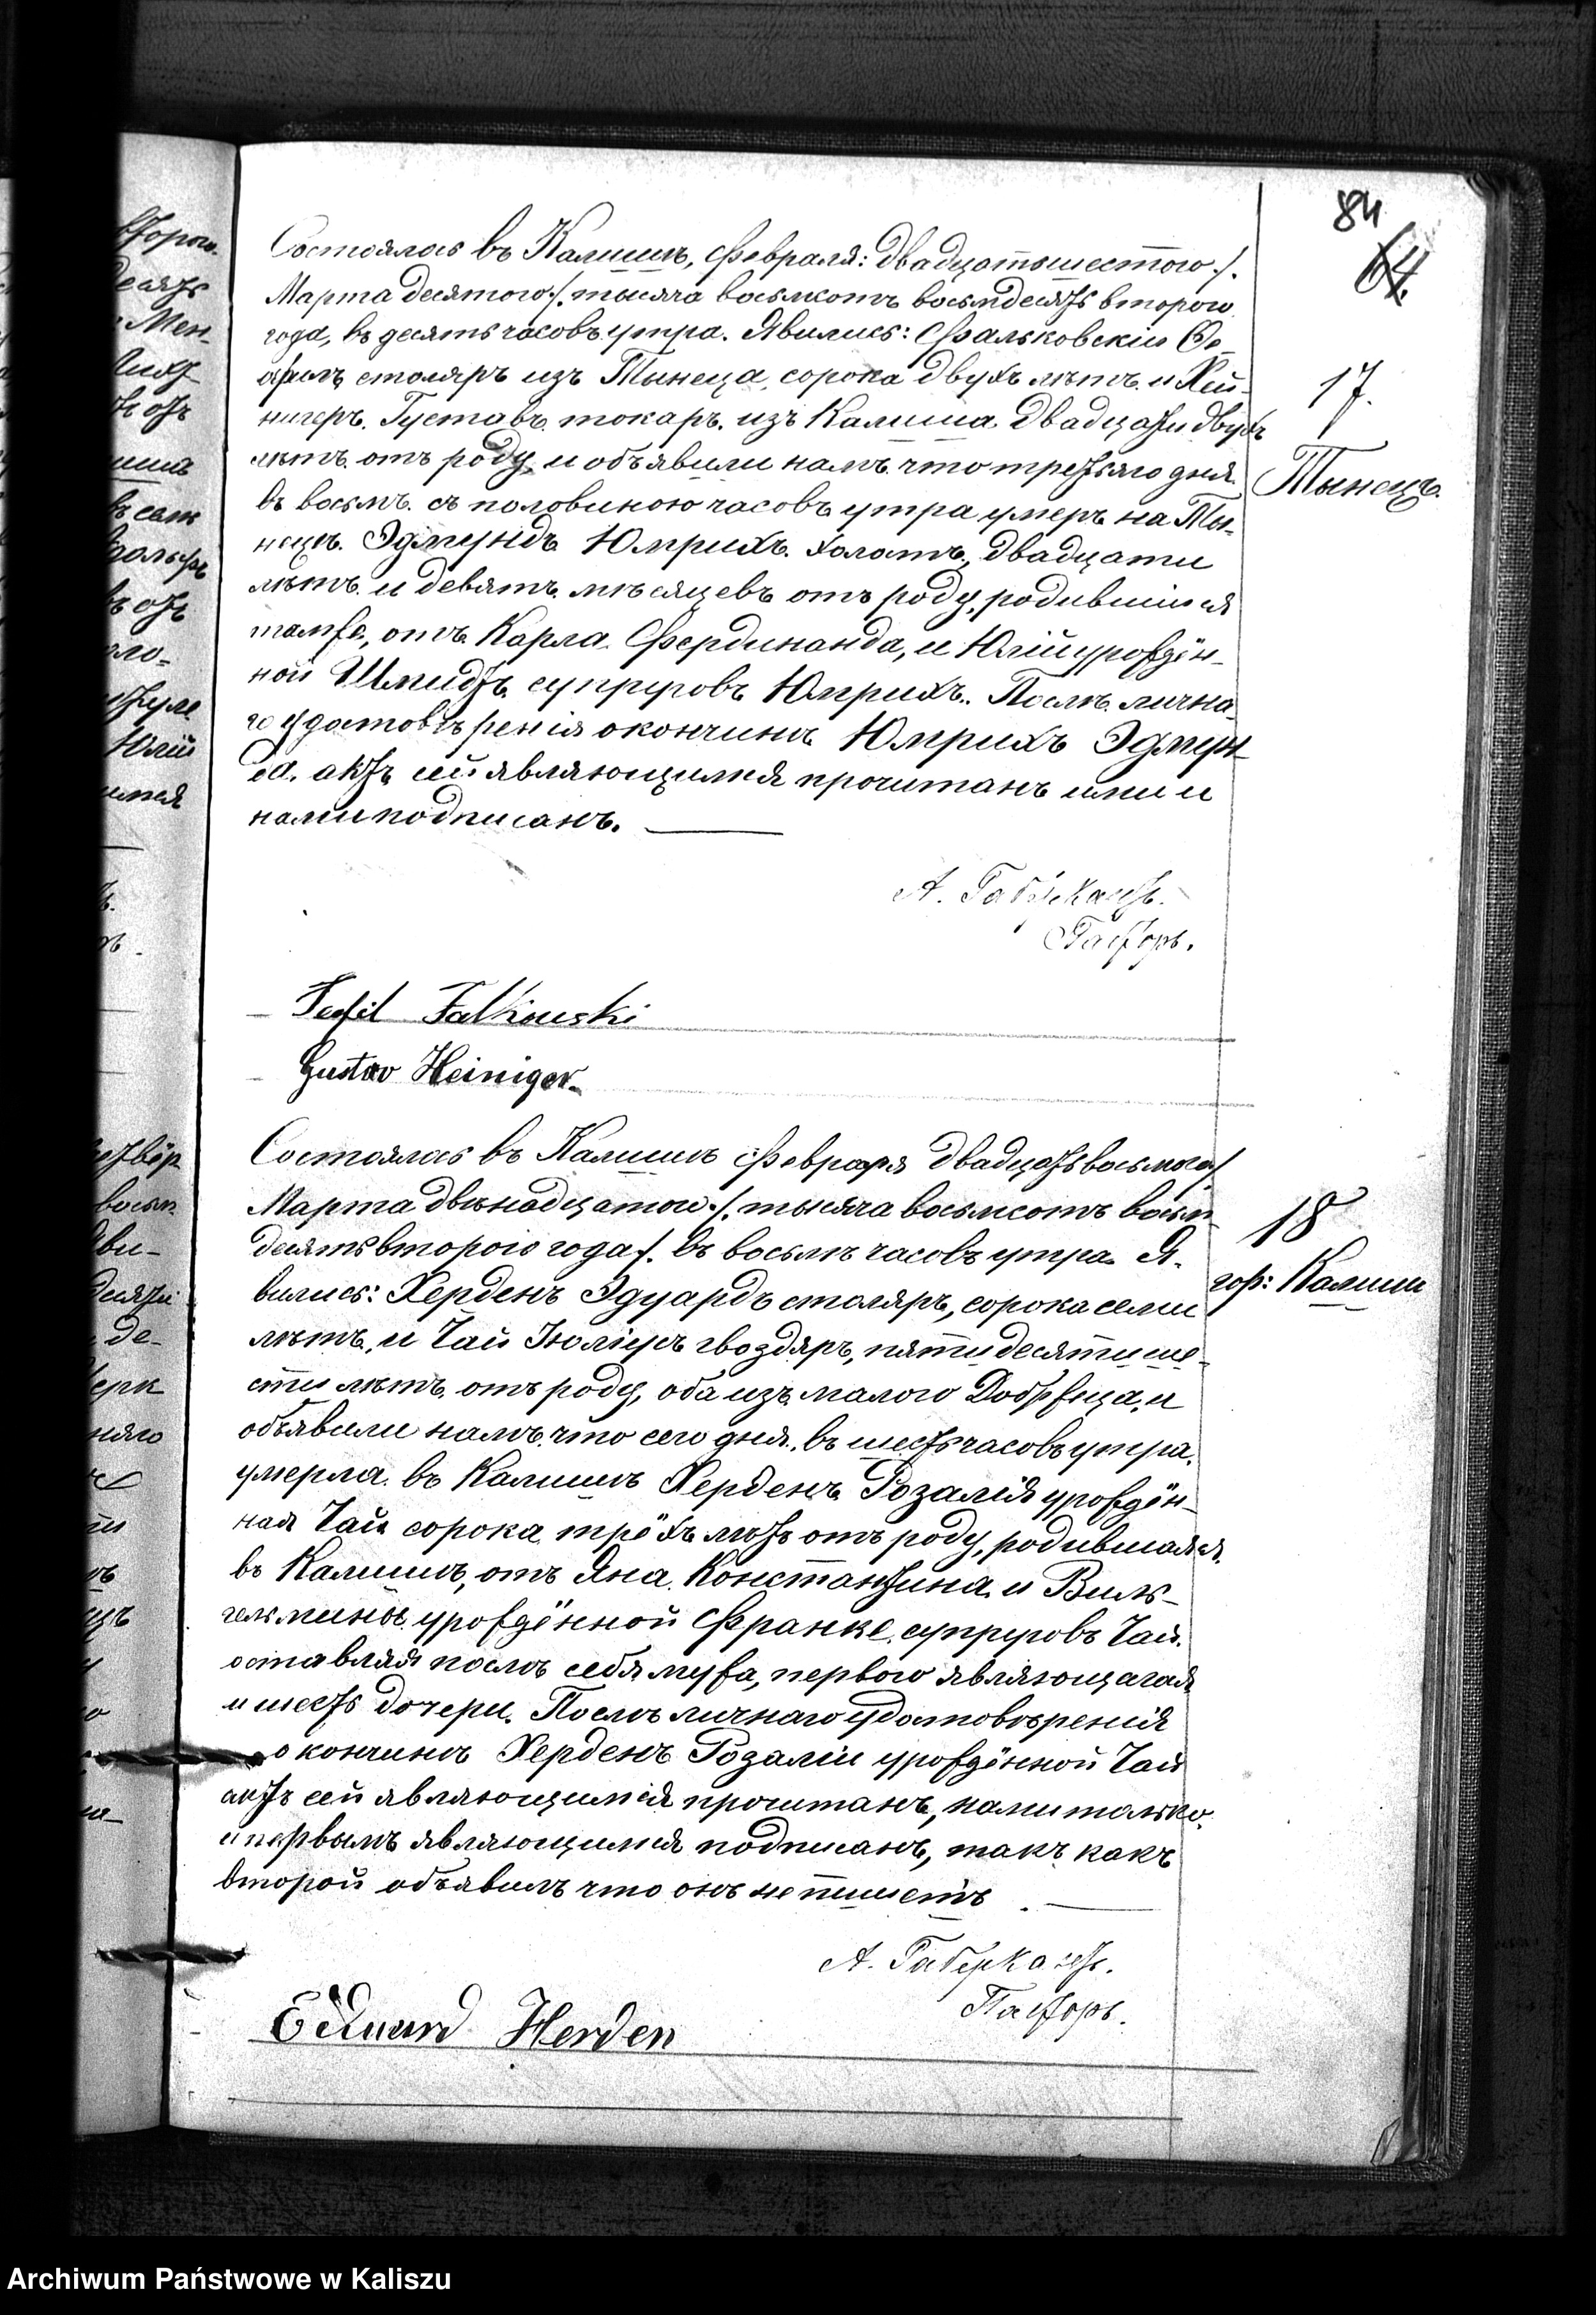 84
64.
Состоялось въ Калишѣ, Февраля: двадцатошестого /.
Марта десятого /. тысяча восьмсотъ восьмдесятъ второго
года, въ десять часовъ утра. Явились: Фальковскій Ѳе-
офилъ столяръ изъ Тынеца, сорока двухъ лѣтъ. и Хей-
нигеръ. Густавъ. токаръ. изъ Калиша. двадцати двухъ
лѣтъ. отъ роду, и объявили намъ. что третьяго дня
въ восьмъ. съ половиною часовъ утра умеръ на Ты-
нецѣ. Эдмундъ Юмрихъ. холостъ, двадцати
лѣтъ. и девять мѣсяцевъ отъ роду, родившійся
тамже, отъ Карла Фердинанда, и Юлій урождён-
ной Шмидтъ супруговъ Юмрихъ. Послѣ лична-
го удостовѣренія о кончинѣ Юмрихъ Эдмун-
да. актъ сей являющимся прочитанъ ими и
нами подписанъ.
17.
Тынецъ.
А. Габеркантъ.
Пасторъ.
Teofil Falkowski
Gustav Heiniger.
Состоялось въ Калишѣ Февраря двадцатьвосьмого /.
Марта двѣнадцатого /. тысяча восьмсотъ восьм-
десятъ второго года /. въ восьмъ часовъ утра. Я-
вились: Херденъ Эдуардъ столяръ, сорока семи
лѣтъ, и Чай Юліусъ гвоздяръ, пятидесяти ше-
сти лѣтъ, отъ роду, оба изъ малого Добржеца, и
объявили намъ, что сего дня, въ шесть часовъ утра,
умерла въ Калишѣ Херденъ Розалія урождён-
ная Чай сорока трёхъ лѣтъ отъ роду, родившаяся
въ Калишѣ, отъ Яна Константина и Виль-
гельмины урождённой Франке, супруговъ Чай.
оставляя послѣ себя мужа, первого являющагося
и шесть дочери. Послѣ личнаго удостовѣренія
о кончинѣ Херденъ Розаліи урождённой Чай
актъ сей являющимся прочитанъ, нами только
и первымъ являющимся подписанъ, такъ какъ
второй объявилъ что онъ не пишетъ
18
гор: Калишъ
А. Габеркантъ.
Пасторъ.
Eduard Herden
Archiwum Państwowe w Kaliszu